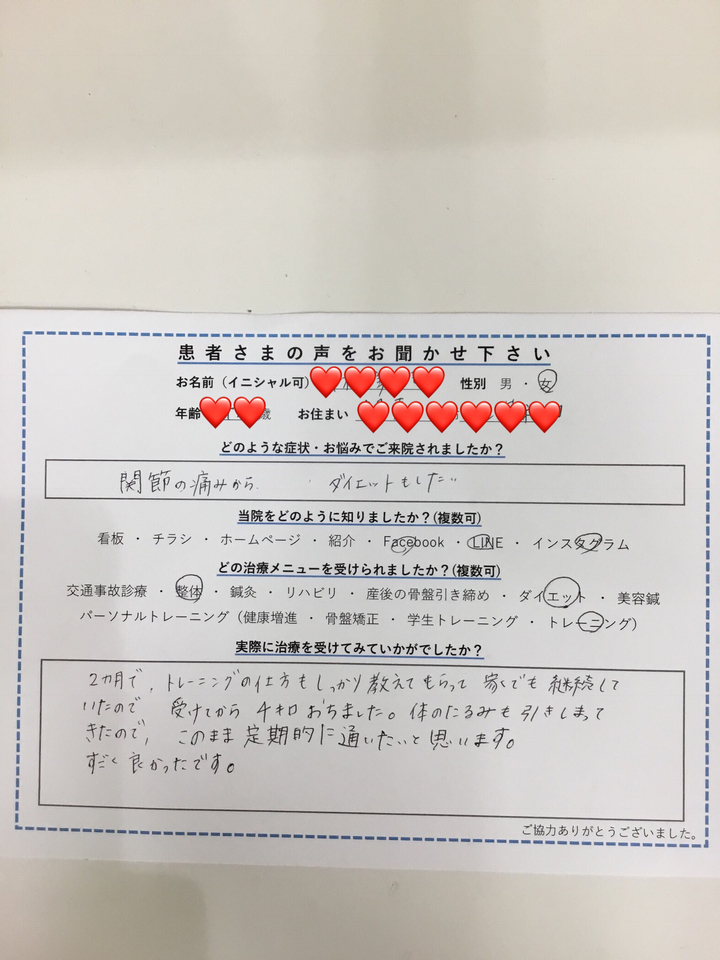 患者さまの声をお聞かせ下さい
お名前（イニシャル可） 性別 男 ・ 女
年齢 歳 お住まい
どのような症状・お悩みでご来院されましたか？
関節の痛みから ダイエットもしたい
当院をどのように知りましたか？(複数可)
看板 ・ チラシ ・ ホームページ ・ 紹介 ・ Facebook ・ LINE ・ インスタグラム
どの治療メニューを受けられましたか？(複数可)
交通事故診療 ・ 整体 ・ 鍼灸 ・ リハビリ ・ 産後の骨盤引き締め ・ ダイエット ・ 美容鍼
パーソナルトレーニング（健康増進 ・ 骨盤矯正 ・ 学生トレーニング ・ トレーニング）
実際に治療を受けてみていかがでしたか？
2カ月で、トレーニングの仕方もしっかり教えてもらって 家でも継続して
いたので 受けてから 4キロおちました。体のたるみも引きしまって
きたので、このまま定期的に通いたいと思います。
すごく良かったです。
ご協力ありがとうございました。